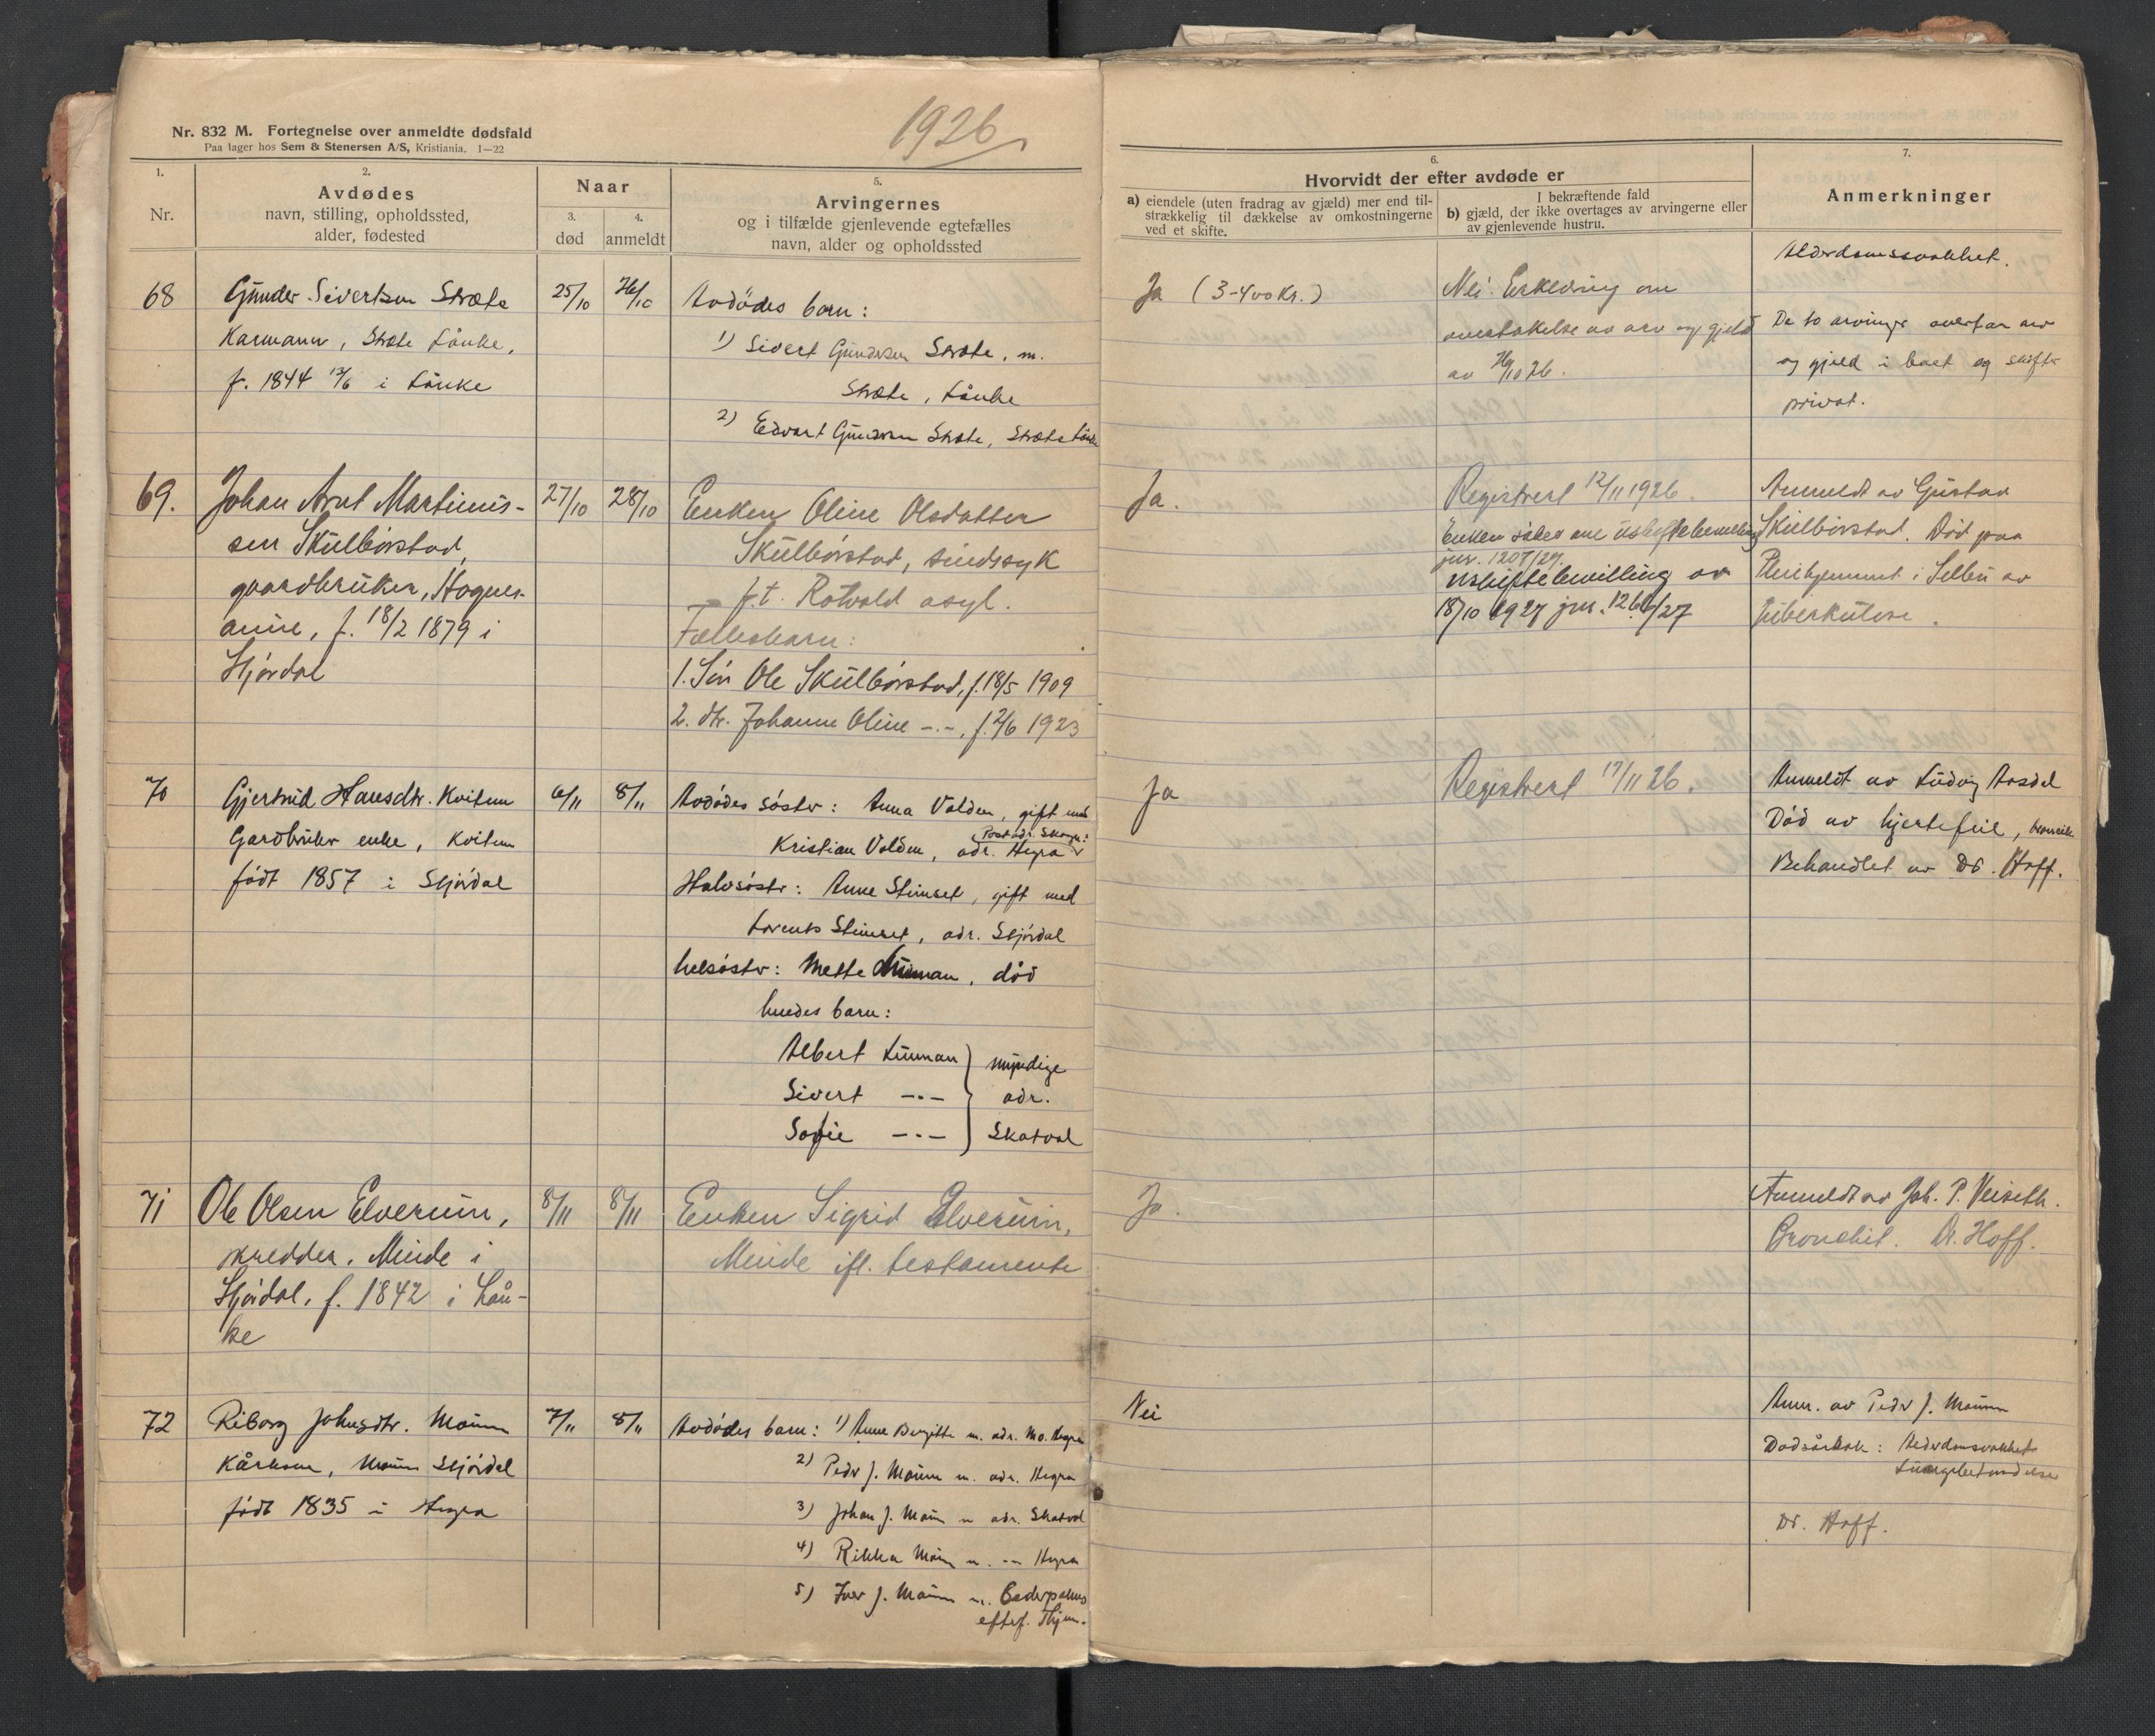 1926
Nr. 832 M. Fortegnelse over anmeldte dødsfald
Paa lager hos Sem & Stenersen A/S, Kristiania. 1—22
1.
Nr.
2.
Avdødes
navn, stilling, opholdssted,
alder, fødested
Naar
3.
død
4.
anmeldt
5.
Arvingernes
og i tilfælde gjenlevende egtefælles
navn, alder og opholdssted
6.
Hvorvidt der efter avdøde er
a) eiendele (uten fradrag av gjæld) mer end til-
strækkelig til dækkelse av omkostningerne
ved et skifte.
I bekræftende fald
b) gjæld, der ikke overtages av arvingerne eller
av gjenlevende hustru.
7.
Anmerkninger
68
Gunder Sivertsen Stræte
Kårmann, Stræte Lånke,
f. 1844 12/6 i Lånke
25/10
26/10
Avdødes barn:
1) Sivert Gundersen Stræte, m.
Stræte, Lånke
2) Edvart Gundersen Stræte, Stræte Lånke
Ja (3-400 Kr.)
Nei. Erklæring om
overtakelse av arv og gjeld
av 26/10 26.
Alderdomssvakhet.
De to arvinger overtar arv
og gjeld i boet og skifter
privat.
69.
Johan Arnt Martinus-
sen Skulbørstad,
gaardbruker,
f. 18/2 1879 i
Stjørdal
27/10
28/10
Enken Oline Olsdatter
Skulbørstad, sindssyk
f.t. Rotvold asyl.
Fællesbarn:
1. Søn Ole Skulbørstad, f. 18/5 1909
2. dtr. Johanne Oline -.-, f. 2/6 1923
Ja.
Registrert 12/11 1926.
Enken søker om uskiftebevilling
jnr. 1207/27.
Uskiftebevilling av
18/10 1927 jnr. 1266/27
Anmeldt av Gustav
Skulbørstad. Død paa
Pleiehjemmet i Selbu av
tuberkulose.
70
Gjertrud Hansdtr. Kvitum
Gardbruker enke, Kvitum
født 1857 i Stjørdal
6/11
8/11
Avdødes søster: Anna Volden, gift med
Kristian Volden, adr. Hegra
Halvsøster: Anne Steinset, gift med
Lorents Steinset, adr. Stjørdal
helsøster: Mette Luman, død
hendes barn:
Albert Luman } myndige
Sivert -.- } adr.
Sofie -.- } Skatval
Ja
Registrert 17/11 26.
Anmeldt av Ludvig Aasdal
Død av hjertefeil,
Behandlet av Dr. Hoff.
71
Ole Olsen Elverum,
skredder, Minde i
Stjørdal, f. 1842 i Lån-
ke
8/11
8/11
Enken Sigrid Elverum,
Minde ifl. testamente
Ja.
Anmeldt av Joh. P. Veiseth.
Bronchit. Dr. Hoff.
72
Riborg Johnsdtr. Maum
Kårkone, Maum Stjørdal
født 1835 i Hegra
7/11
8/11
Avdødes barn: 1) Anne Bergitte m. adr. Mo. Hegra
2) Peder J. Maum m. adr. Hegra
3) Johan J. Maum m adr. Skatval
4) Rikka Maum m. -- Hegra
5) Iver J. Maum m.
efterf. Thjem.
Nei
Anm. av Peder J. Mauum
Dødsårsak: Alderdomssvakhet
Lungebetendelse
Dr. Hoff.